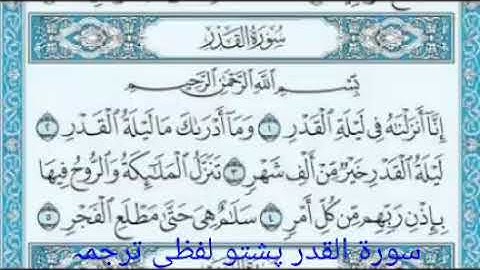 سُورَةُ القَدْرِ
بِسْمِ اللَّهِ الرَّحْمَٰنِ الرَّحِيمِ
إِنَّا أَنزَلْنَٰهُ فِى لَيْلَةِ ٱلْقَدْرِ ١ وَمَآ أَدْرَىٰكَ مَا لَيْلَةُ ٱلْقَدْرِ ٢
لَيْلَةُ ٱلْقَدْرِ خَيْرٌ مِّنْ أَلْفِ شَهْرٍ ٣ تَنَزَّلُ ٱلْمَلَٰٓئِكَةُ وَٱلرُّوحُ فِيهَا
بِإِذْنِ رَبِّهِم مِّن كُلِّ أَمْرٍ ٤ سَلَٰمٌ هِىَ حَتَّىٰ مَطْلَعِ ٱلْفَجْرِ ٥
سورة القدر پشتو لفظی ترجمہ